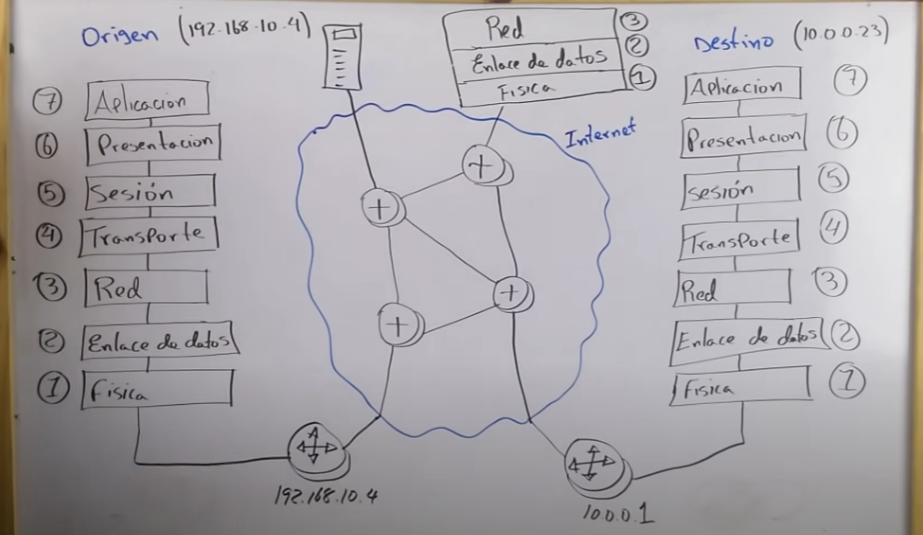 Origen (192.168.10.4)
7 Aplicacion
6 Presentacion
5 Sesión
4 Transporte
3 Red
2 Enlace de datos
1 Fisica
192.168.10.4
Red 3
Enlace de datos 2
Fisica 1
Internet
Destino (10.0.0.23)
Aplicacion 7
Presentacion 6
sesión 5
Transporte 4
Red 3
Enlace de datos 2
Fisica 1
10.0.0.1